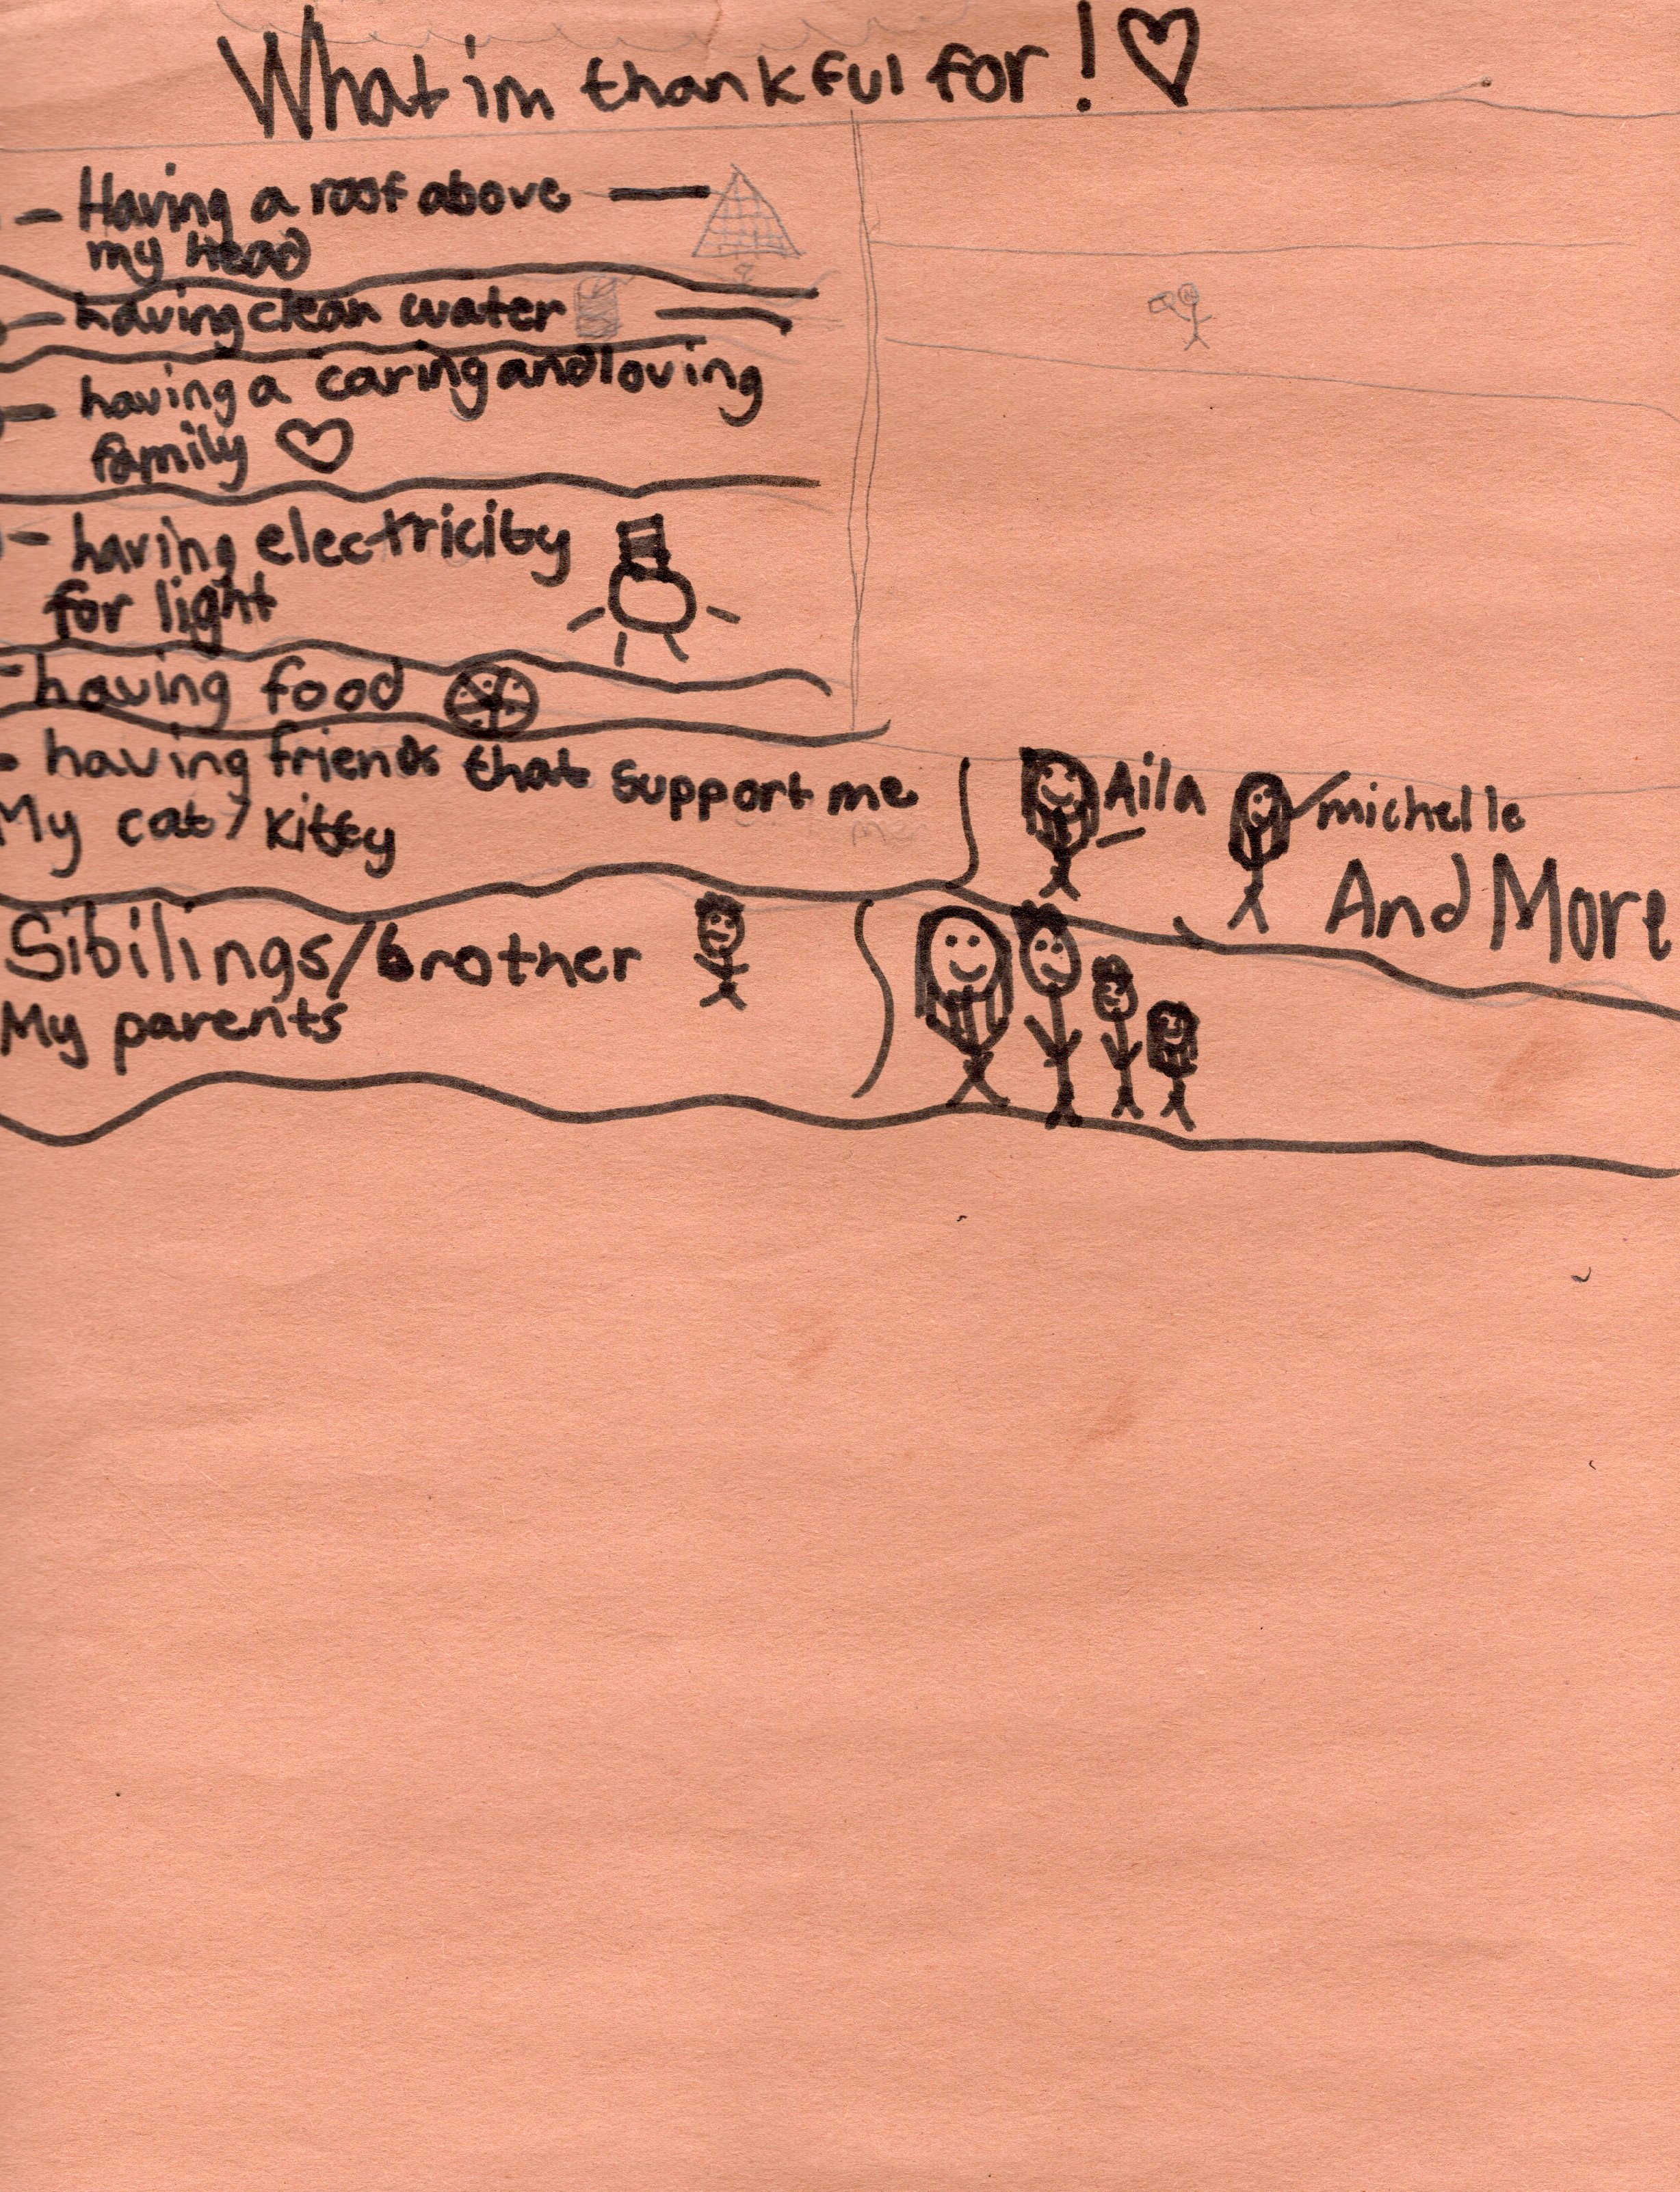 What im thankful for! ♡
- Having a roof above
my head
- having clean water
- having a caring and loving
family ♡
- having electricity
for light
- having food
- having friends that support me
me
My cat / kitty
Aila
michelle
And More
Sibilings/brother
My parents